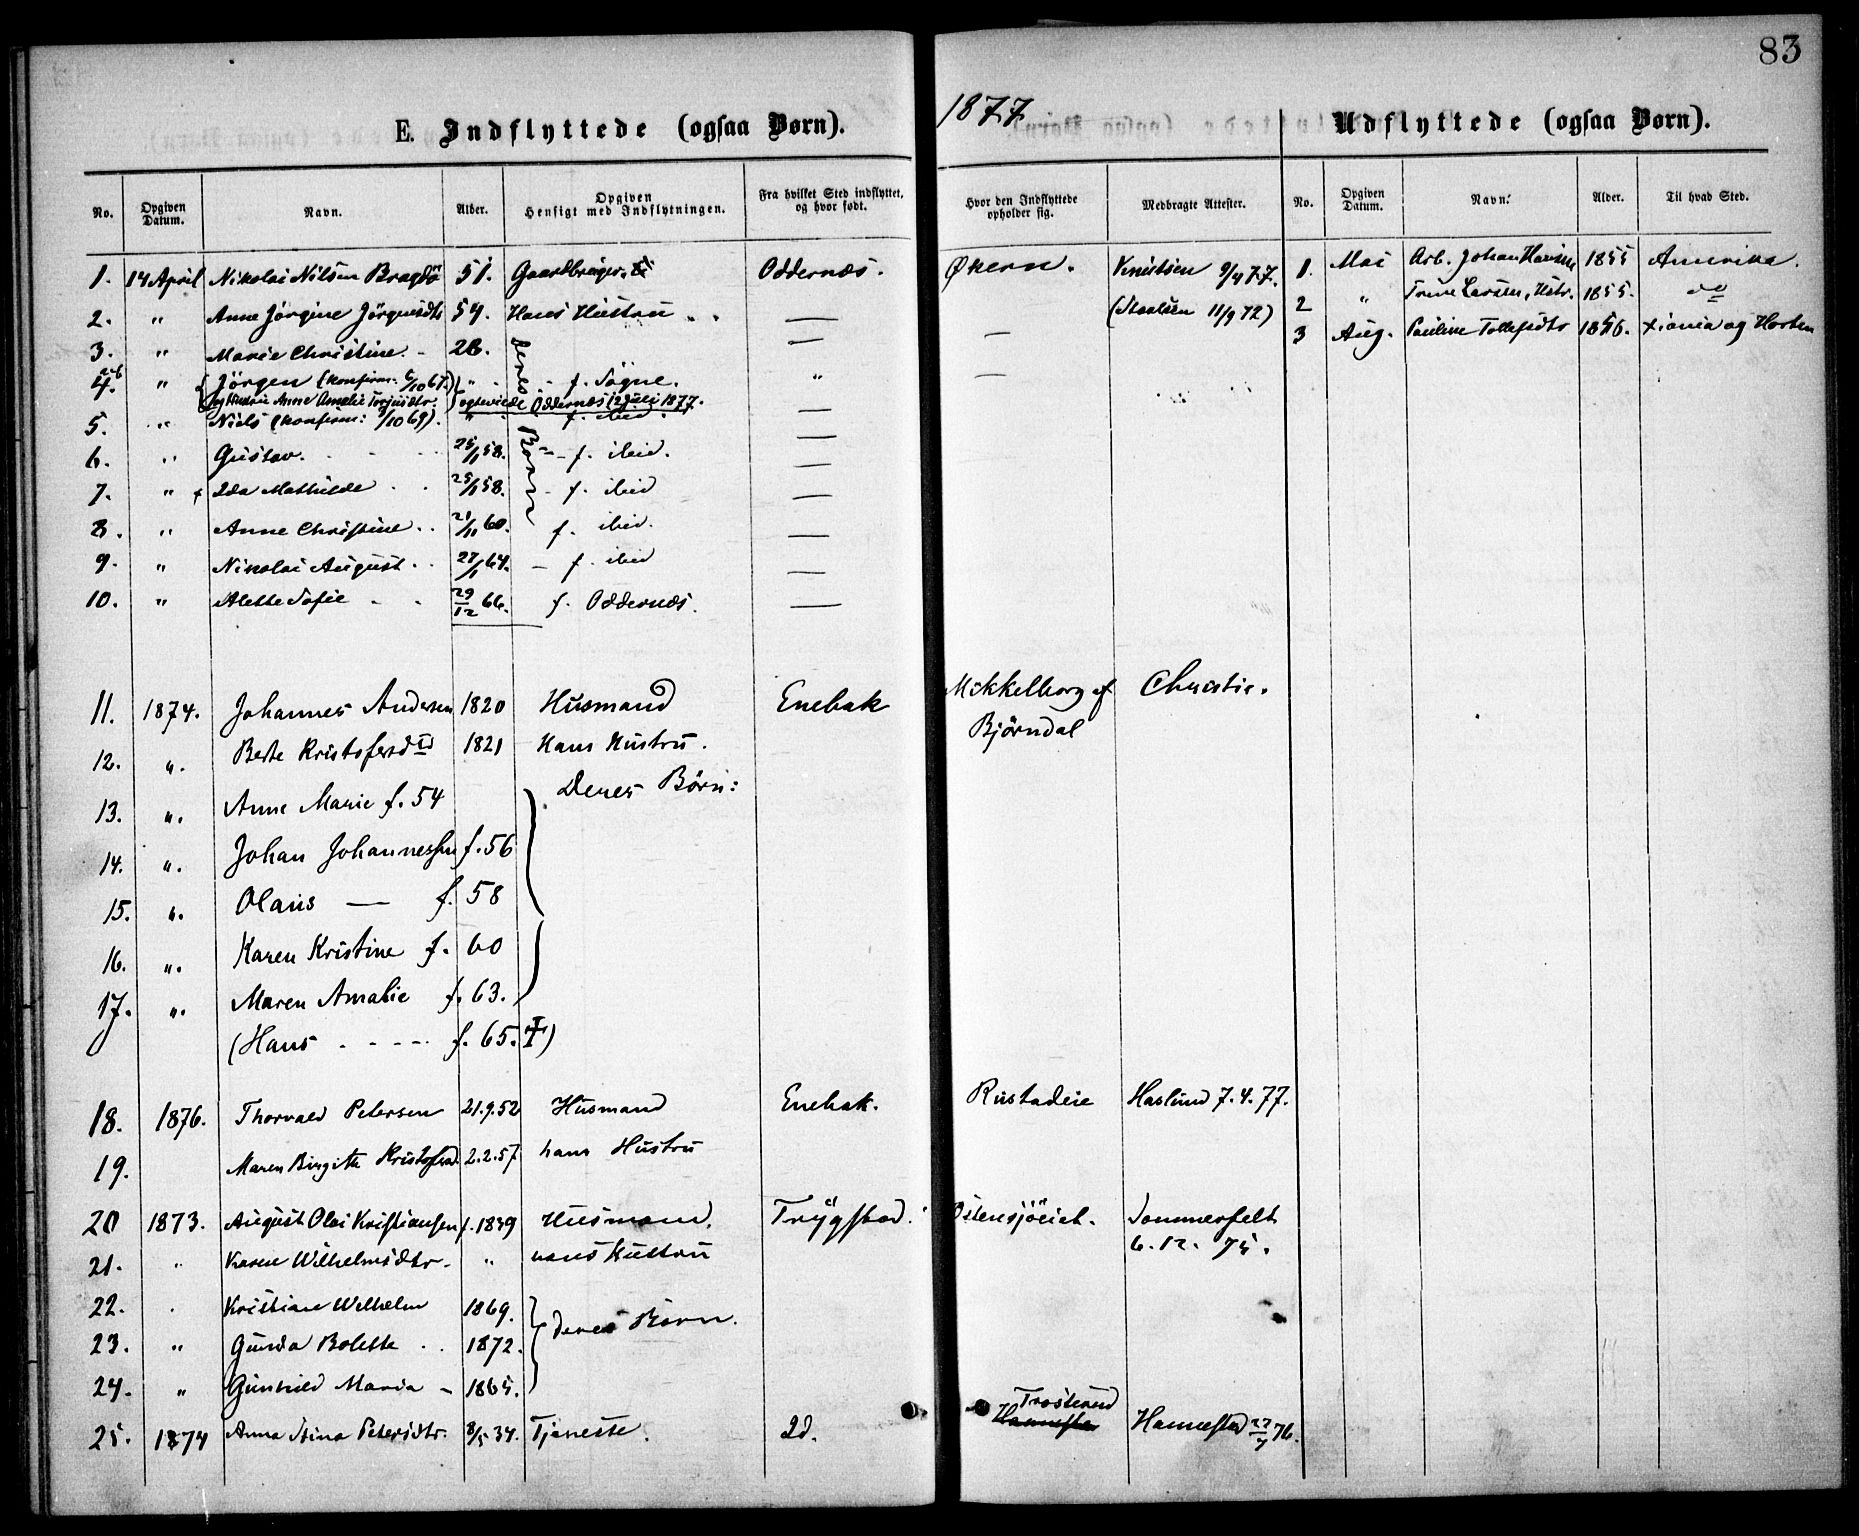 83
1877
E. Indflyttede (ogsaa Børn).
No. Opgiven Datum. Navn. Alder. Opgiven Hensigt med Indflytningen. Fra hvilket Sted indflyttet, og hvor født. Hvor den Indflyttede opholder sig. Medbragte Attester.
1. 14 April Nikolai Nilsen Bragdö 51. Gaardbruger Oddernæs. Økern. Knudsen 9/4 77.
2. " Anne Jörgine Jörgensdtr 54. Hans Hustru — — (Staalsen 11/9 72)
3. " Marie Christine. - 26. deres — —
4. " Jörgen (konfirm: 6/10 67.) " - f. Sögne. " —
og Hustru Anne Amalie Torjusdtr. ogsviede Oddernæs 12 Juli 1877.
5. " Niels (konfirm: 3/10 69). " f. ibid. —
6. " Gustav. 25/1 58. Børn - f. ibid. —
7. " Ida Mathilde 25/1 58. - f. ibid —
8. " Anne Christine 21/11 60. f. ibid. —
9. " Nikolai August 27/1 64. - f. ibid —
10. " Alette Sofie 29/12 66. f. Oddernæs. —
11. 1874. Johannes Andersen 1820 Husmand Enebak Mikkelborg Christie.
Bjørndal
12. " Berte Kristofersd 1821 Hans Hustru.
Deres Børn:
13. " Anne Marie f. 54
14. " Johan Johannessen f. 56
15. " Olaus — f. 58
16. " Karen Kristine f. 60
17. " Maren Amalie f. 63.
(Hans - - - - f. 65. †)
18. 1876. Thorvald Petersen 21.9.52 Husmand Enebak. Rustadeie Haslund 7.4.77.
19. Maren Birgitte Kristofersd. 2.2.57 hans Hustru
20 1873. August Olai Kristiansen f. 1839 Husmand. Trygstad. Østensjöeiet. Sommerfelt
6.12. 75.
21. " Karen Wilhelmsdtr. " hans Hustru
22. Kristian Wilhelm 1869.
23. " Gunda Bolette 1872. deres Børn.
24. " Gunhild Maria - 1865.
25. 1874 Anna Stina Petersdtr. 8/5 34. Tjeneste. Id. Trosterud Hannestad 22/7 76.
Udflyttede (ogsaa Børn).
No. Opgiven Datum. Navn. Alder. Til hvad Sted.
1. Mai Arb. Johan Hansen 1855 Amerika.
2 " Trine Larsen, Hstr. 1855. do
3 Aug. Pauline Tollefsdtr 1856. Xiania og Horten